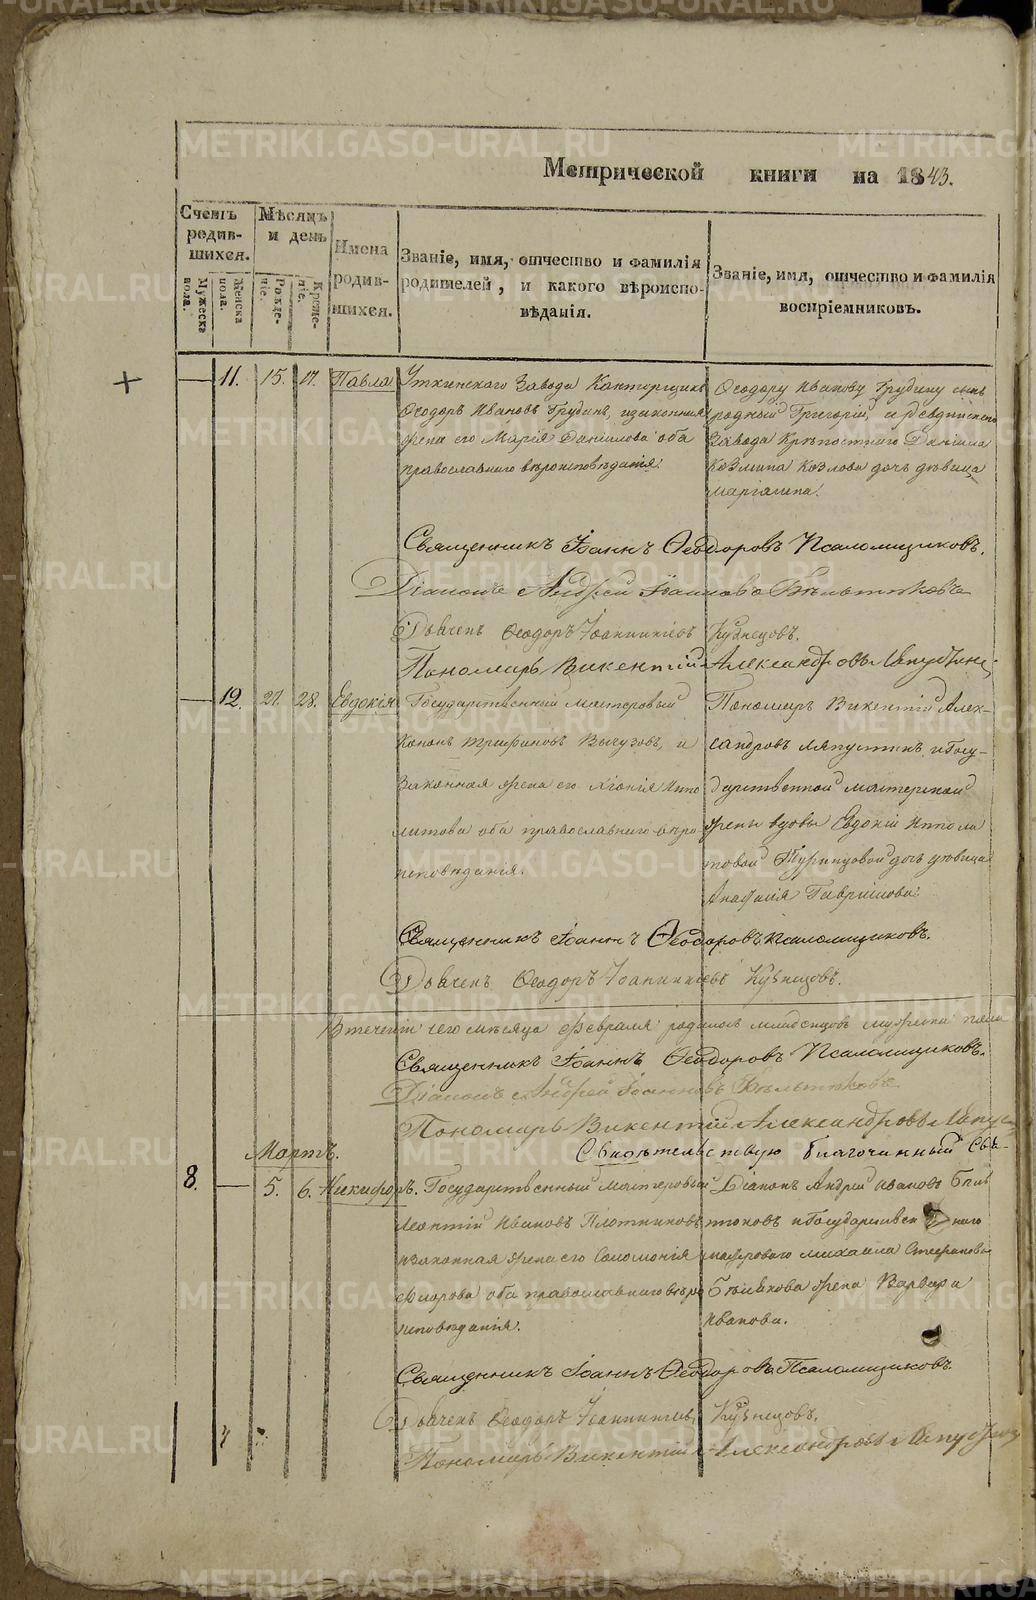 METRIKI.GASO-URAL.RU
Метрической книги на 1843.
Счетъ родив-шихся.
Мужеска пола.
Женска пола.
Мѣсяцъ и день
Рожде-ніе.
Креще-ніе.
Имена родив-шихся.
Званіе, имя, отчество и фамилія
родителей, и какого вѣроиспо-
вѣданія.
Званіе, имя, отчество и фамилія
воспріемниковъ.
11. 15. 17. Павла
Уткинскаго Завода Канторщикъ
Ѳеодоръ Ивановъ Трубинъ, изаконная
жена его Марія Данилова оба
православнаго вѣроисповѣданія.
Ѳеодору Иванову Трубину сынъ
родный Григорій, и Ревдинскаго
Завода Крѣпостнаго Даніила
Козмина Козлова дочь дѣвица
Священникъ Іоаннъ Ѳеодоровъ Псаломщиковъ.
Діаконъ Андрей Іоанновъ
Дьячекъ Ѳеодоръ Іоанникіевъ Кузнецовъ.
Пономарь Викентій Александровъ Ляпустинъ
12. 27. 28. Евдокія
Государственный мастеровый
Кононъ Трифановъ и
Законная жена его Хіонія Иппо
литова оба православнаго вѣро
исповѣданія.
Пономарь Викентій Алек-
сандровъ Ляпустинъ и Госу-
дарственной мастерской
жены вдовы Евдокіи Ипполи
товой дочь дѣвица
Гаврилова.
Священникъ Іоаннъ Ѳеодоровъ Псаломщиковъ.
Дьячекъ Ѳеодоръ Іоанникіевъ Кузнецовъ.
Втеченіи сего мѣсяца Февраля родилось младенцовъ мужеска пола
Священникъ Іоаннъ Ѳеодоровъ Псаломщиковъ.
Діаконъ Андрей Іоанновъ
Пономарь Викентій Александровъ Ляпус
Свидѣтельствую Благочинный Свя-
Мартъ.
8. 5. 6. Никифоръ.
Государственный мастеровый
Леонтій Ивановъ Плотниковъ
изаконная жена его Соломонія
православнаго вѣро
исповѣданія.
Діаконъ Андрей Ивановъ Бѣль
тюковъ и Государственнаго
мастероваго Михаила Стефанова
Бѣлькова жена Варвара
Иванова.
Священникъ Іоаннъ Ѳеодоровъ Псаломщиковъ
Дьячекъ Ѳеодоръ Іоанникіевъ Кузнецовъ.
Пономарь Викентій Александровъ Ляпустинъ